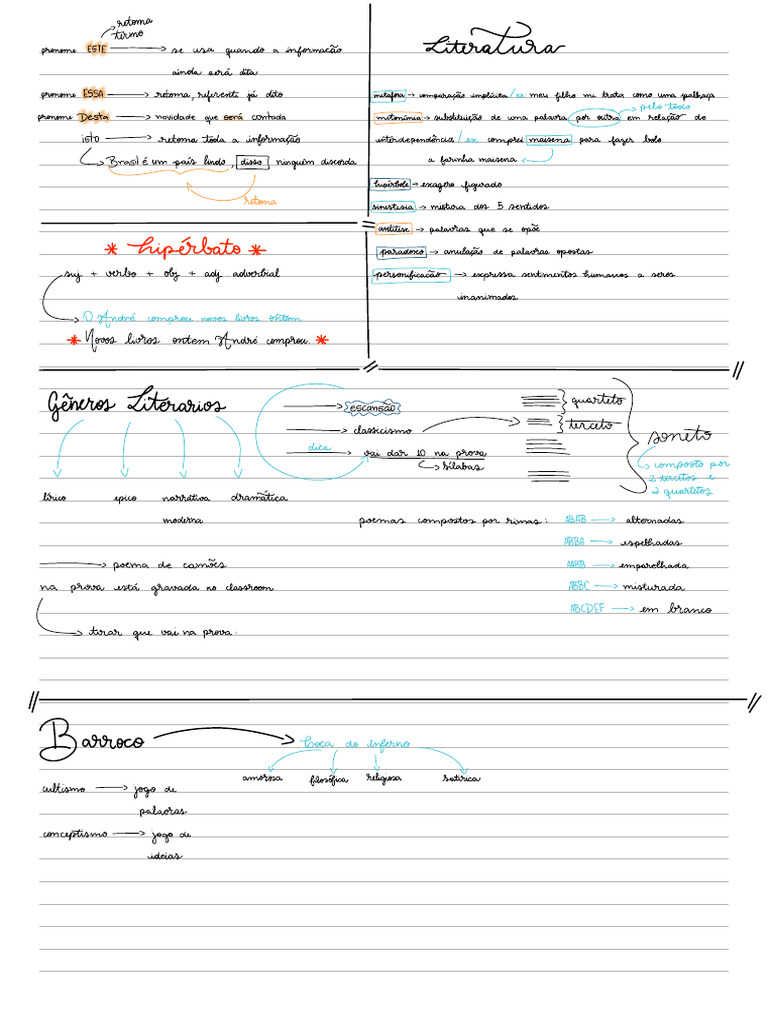 retoma
termo
pronome ESTE → se usa quando a informação
ainda será dita
pronome ESSA → retoma, referente já dito
pronome Desta → novidade que será contada
isto → retoma toda a informação
Brasil é um país lindo, disso ninguém discorda
retoma
* hipérbato *
suj + verbo + obj + adj adverbial
O André comprou novos livros ontem
* Novos livros ontem André comprou. *
Literatura
metafora → comparação implícita / ex meu filho me trata como uma palhaça
pelo todo
metonímia → substituição de uma palavra por outra em relação de
interdependência / ex comprei maisena para fazer bolo
a farinha maisena
hipérbole → exagero figurado
sinestisia → mistura dos 5 sentidos
antítise → palavras que se opõe
paradoxo → anulação de palavras opostas
personificação → expressa sentimentos humanos a seres
inanimados
Gêneros Literarios
lírico epico narrativa dramática
moderna
→ poema de camões
na prova está gravada no classroom
tirar que vai na prova.
→ escansão
→ classicismo
dica → vai dar 10 na prova
sílabas
quarteto
terceto
soneto
composto por
2 tercetos e
2 quartetos
poemas compostos por rimas: ABAB → alternadas
ABBA → espelhadas
AABB → emparelhada
ABBC → misturada
ABCDEF → em branco
Barroco → boca do inferno
amorosa filosófica religiosa satirica
cultismo → jogo de
palavras
conceptismo → jogo de
ideias